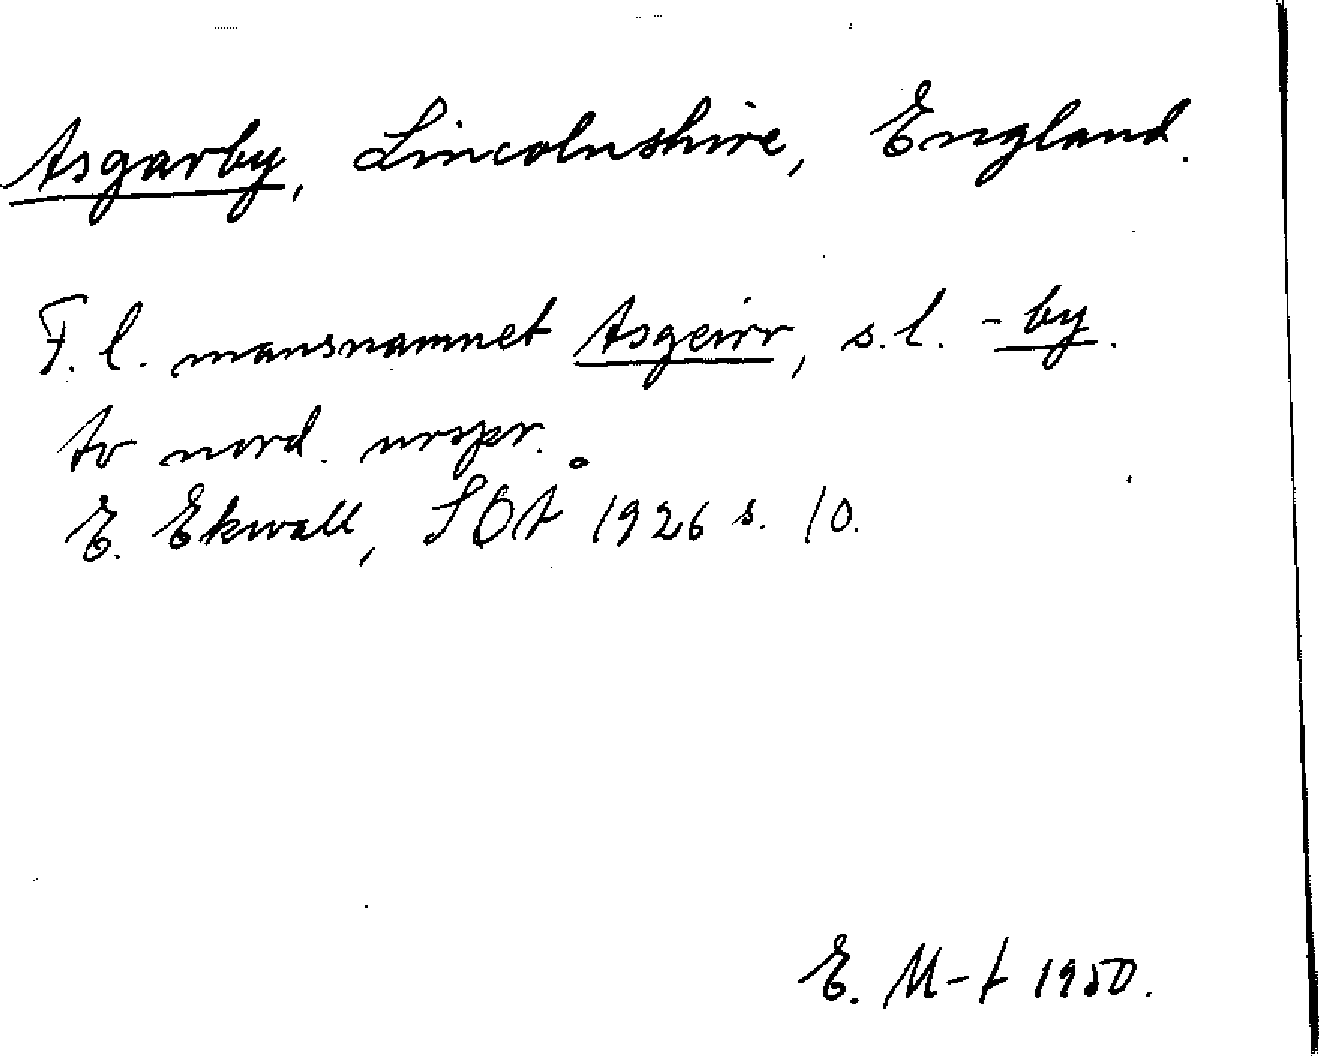 Asgarby, Lincolnshire, England.
F. l. mansnamnet Asgeirr, s. l. -by.
Av nord. urspr.
E. Ekwall, SOÅ 1926 s. 10.
E. M-t 1950.